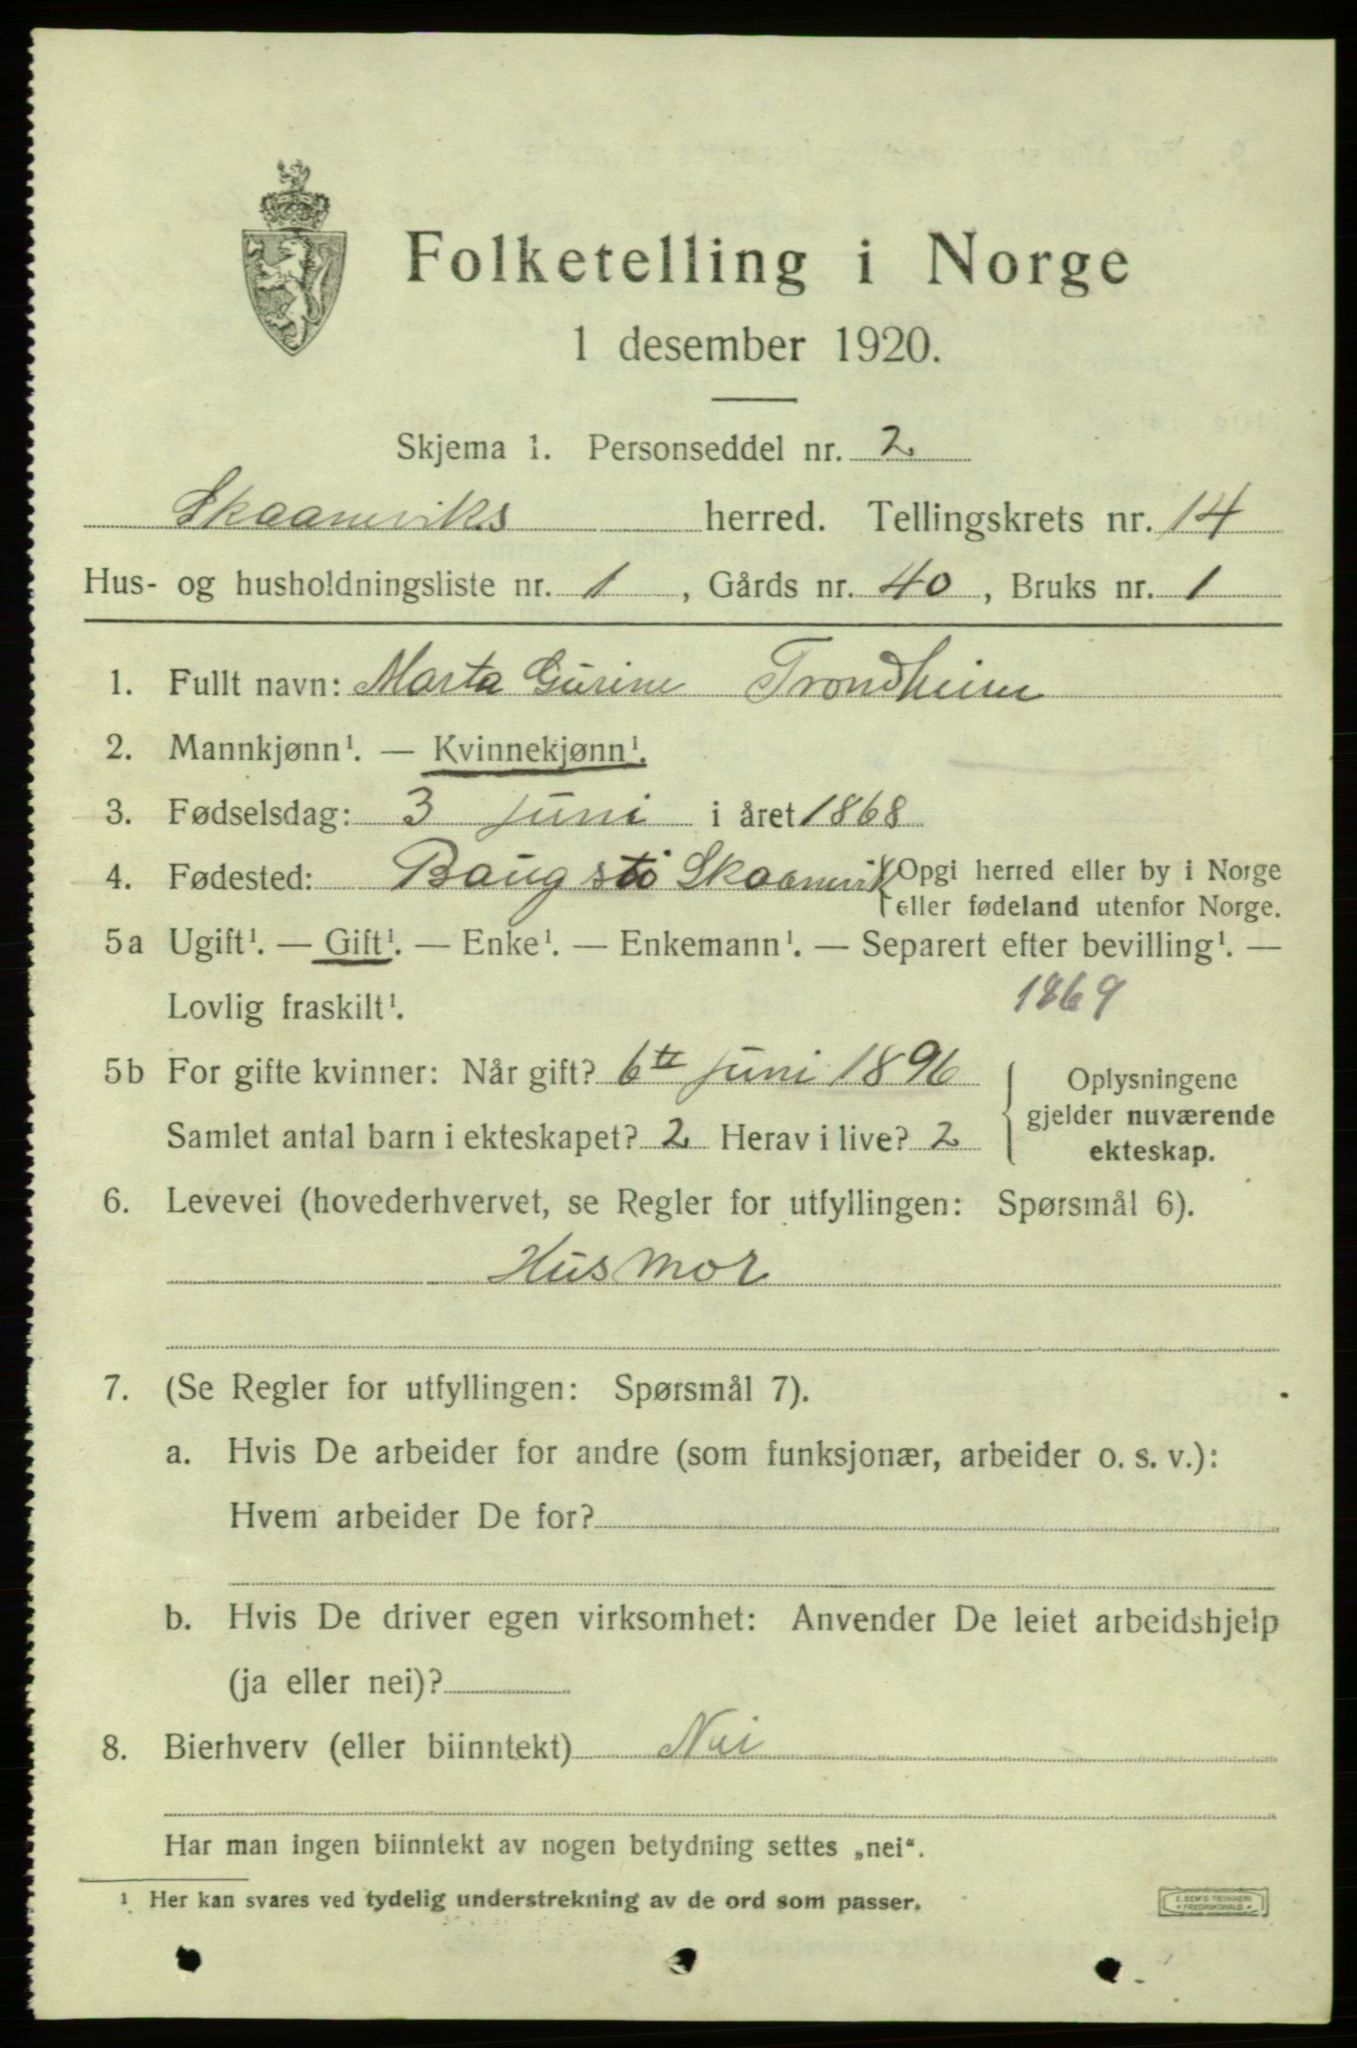 Folketelling i Norge
1 desember 1920.
Skjema 1. Personseddel nr. 2
Skaaneviks herred. Tellingskrets nr. 14
Hus- og husholdningsliste nr. 1, Gårds nr. 40, Bruks nr. 1
1. Fullt navn: Marta Gurine Trondheim
2. Mannkjønn¹. — Kvinnekjønn¹.
3. Fødselsdag: 3 juni i året 1868
4. Fødested: Baugstö Skaanevik { Opgi herred eller by i Norge
eller fødeland utenfor Norge.
5a Ugift¹. — Gift¹. — Enke¹. — Enkemann¹. — Separert efter bevilling¹. —
Lovlig fraskilt¹. 1869
5b For gifte kvinner: Når gift? 6te juni 1896 { Oplysningene
gjelder nuværende
Samlet antal barn i ekteskapet? 2 Herav i live? 2 ekteskap.
6. Levevei (hovederhvervet, se Regler for utfyllingen: Spørsmål 6).
Husmor
7. (Se Regler for utfyllingen: Spørsmål 7).
a. Hvis De arbeider for andre (som funksjonær, arbeider o. s. v.):
Hvem arbeider De for?
b. Hvis De driver egen virksomhet: Anvender De leiet arbeidshjelp
(ja eller nei)?
8. Bierhverv (eller biinntekt) Nei
Har man ingen biinntekt av nogen betydning settes „nei“.
¹ Her kan svares ved tydelig understrekning av de ord som passer.
E. SEM'S TRYKKERI
FREDRIKSHALD